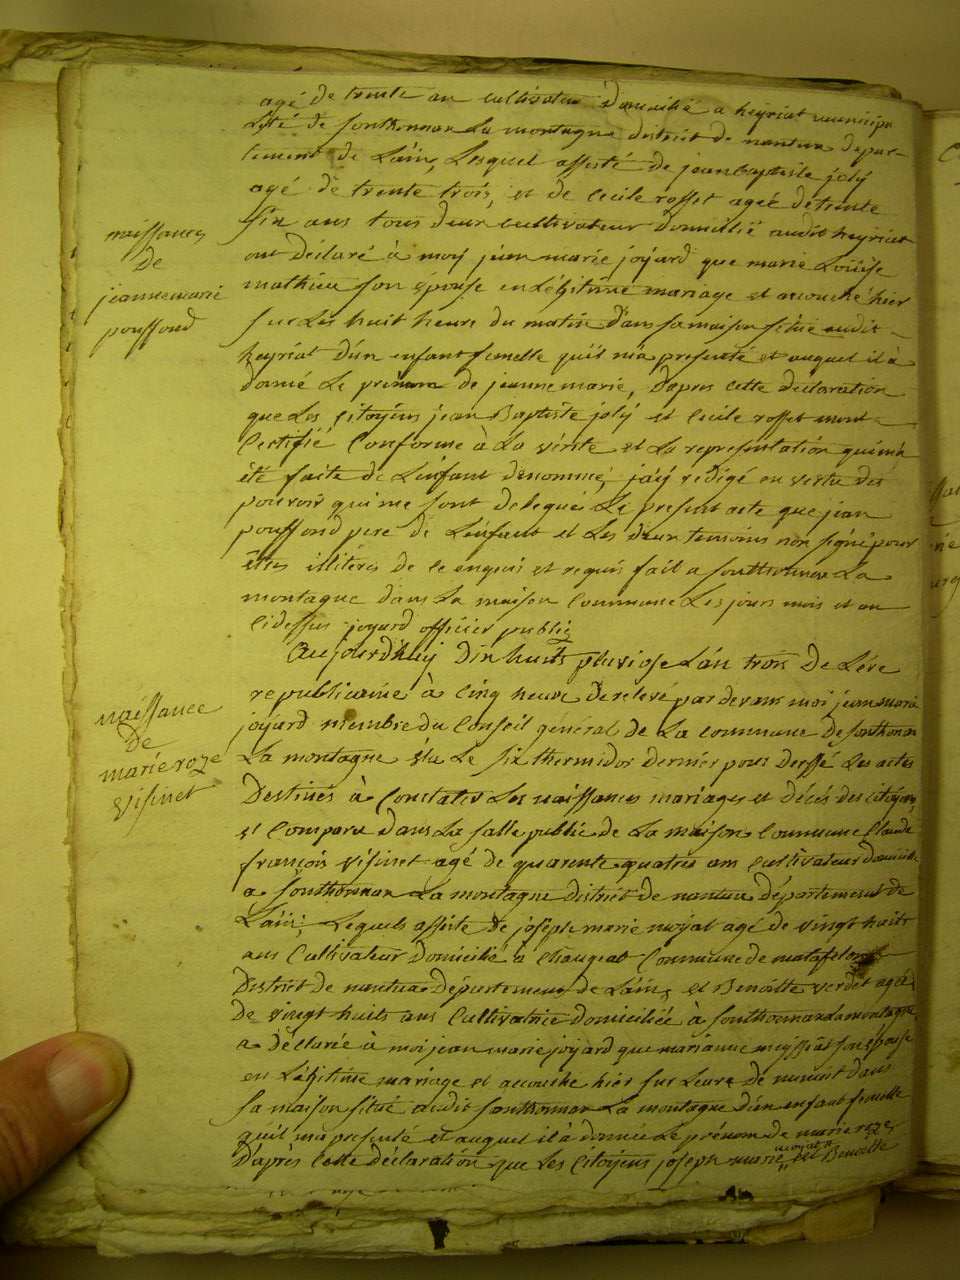 agé de trente an cultivateur domicilié a heyriat municipa
lité de Sonthonnax La montagne district de nantua depar-
tement de Lain, Lesquel assisté de jean baptiste joly
agé de trente trois, et de Cecile rosset ageé de trente
six ans tous deux cultivateur domicilié audit heyriat
ont déclaré à moy jean marie joyard que marie Loüise
mathieu son épouse en Légitime mariage et accouché hier
sur Les huit heure du matin dans sa maison situé audit
heyriat d'un enfant femelle quil m'a presenté et auquel il a
donné Le prénom de jeanne marie, D'apres cette declaration
que Les Citoyens jean Baptiste joly et Cecile rosset mont
Certifié Conforme à La vérité et La representation qui m'a
été faite de Lenfant denommé, jaÿ redigé en vertu des
pouvoir qui me sont delegués Le present acte que jean
pouffond pere de Lenfant et Les deux temoins non signé pour
êtres illitéres de ce enquis et requis fait a Sonthonnax La
montagne dans La maison Commune Les jours mois et an
Cidessus joyard officier public
naissances
de
jeanne marie
pouffond
Aujourdhuy dix huits pluviose Lan trois de Lére
republicaine à Cinq heure de relevé par devant moi jean marie
joyard membre du Conseil général de La commune de Sonthonnax
La montagne élu Le six thermidor dernier pour dressé Les actes
Destinés à Constater Les naissances mariages et décés des citoyens,
est Comparu dans La salle public de La maison Commune Claude
françois visinet agé de quarente quatres ans Cultivateur domicilié
a Sonthonnax La montagne district de nantua département de
Lain, Lequels assisté de joseph marie moyat agé de vingt huits
ans Cultivateur Domicilié a Chaugeat Commune de matafelon
District de nantua Département de Lain, et Benoitte verdet ageé
De vingt huits ans Cultivatrice domiciliée à Sonthonnax La montagne
a Déclarée à moi jean marie joyard que marianne son épouse
en Légitime mariage et accouché hier sur Leure de minuit dans
sa maison situé audit Sonthonnax La montagne d'un enfant femelle
quil ma presenté et auquel il à donnée Le prénom de marie roze,
D'après Cette déclaration que Les Citoyens joseph marie moyat et Benoitte
naissance
de
marie roze
visinet